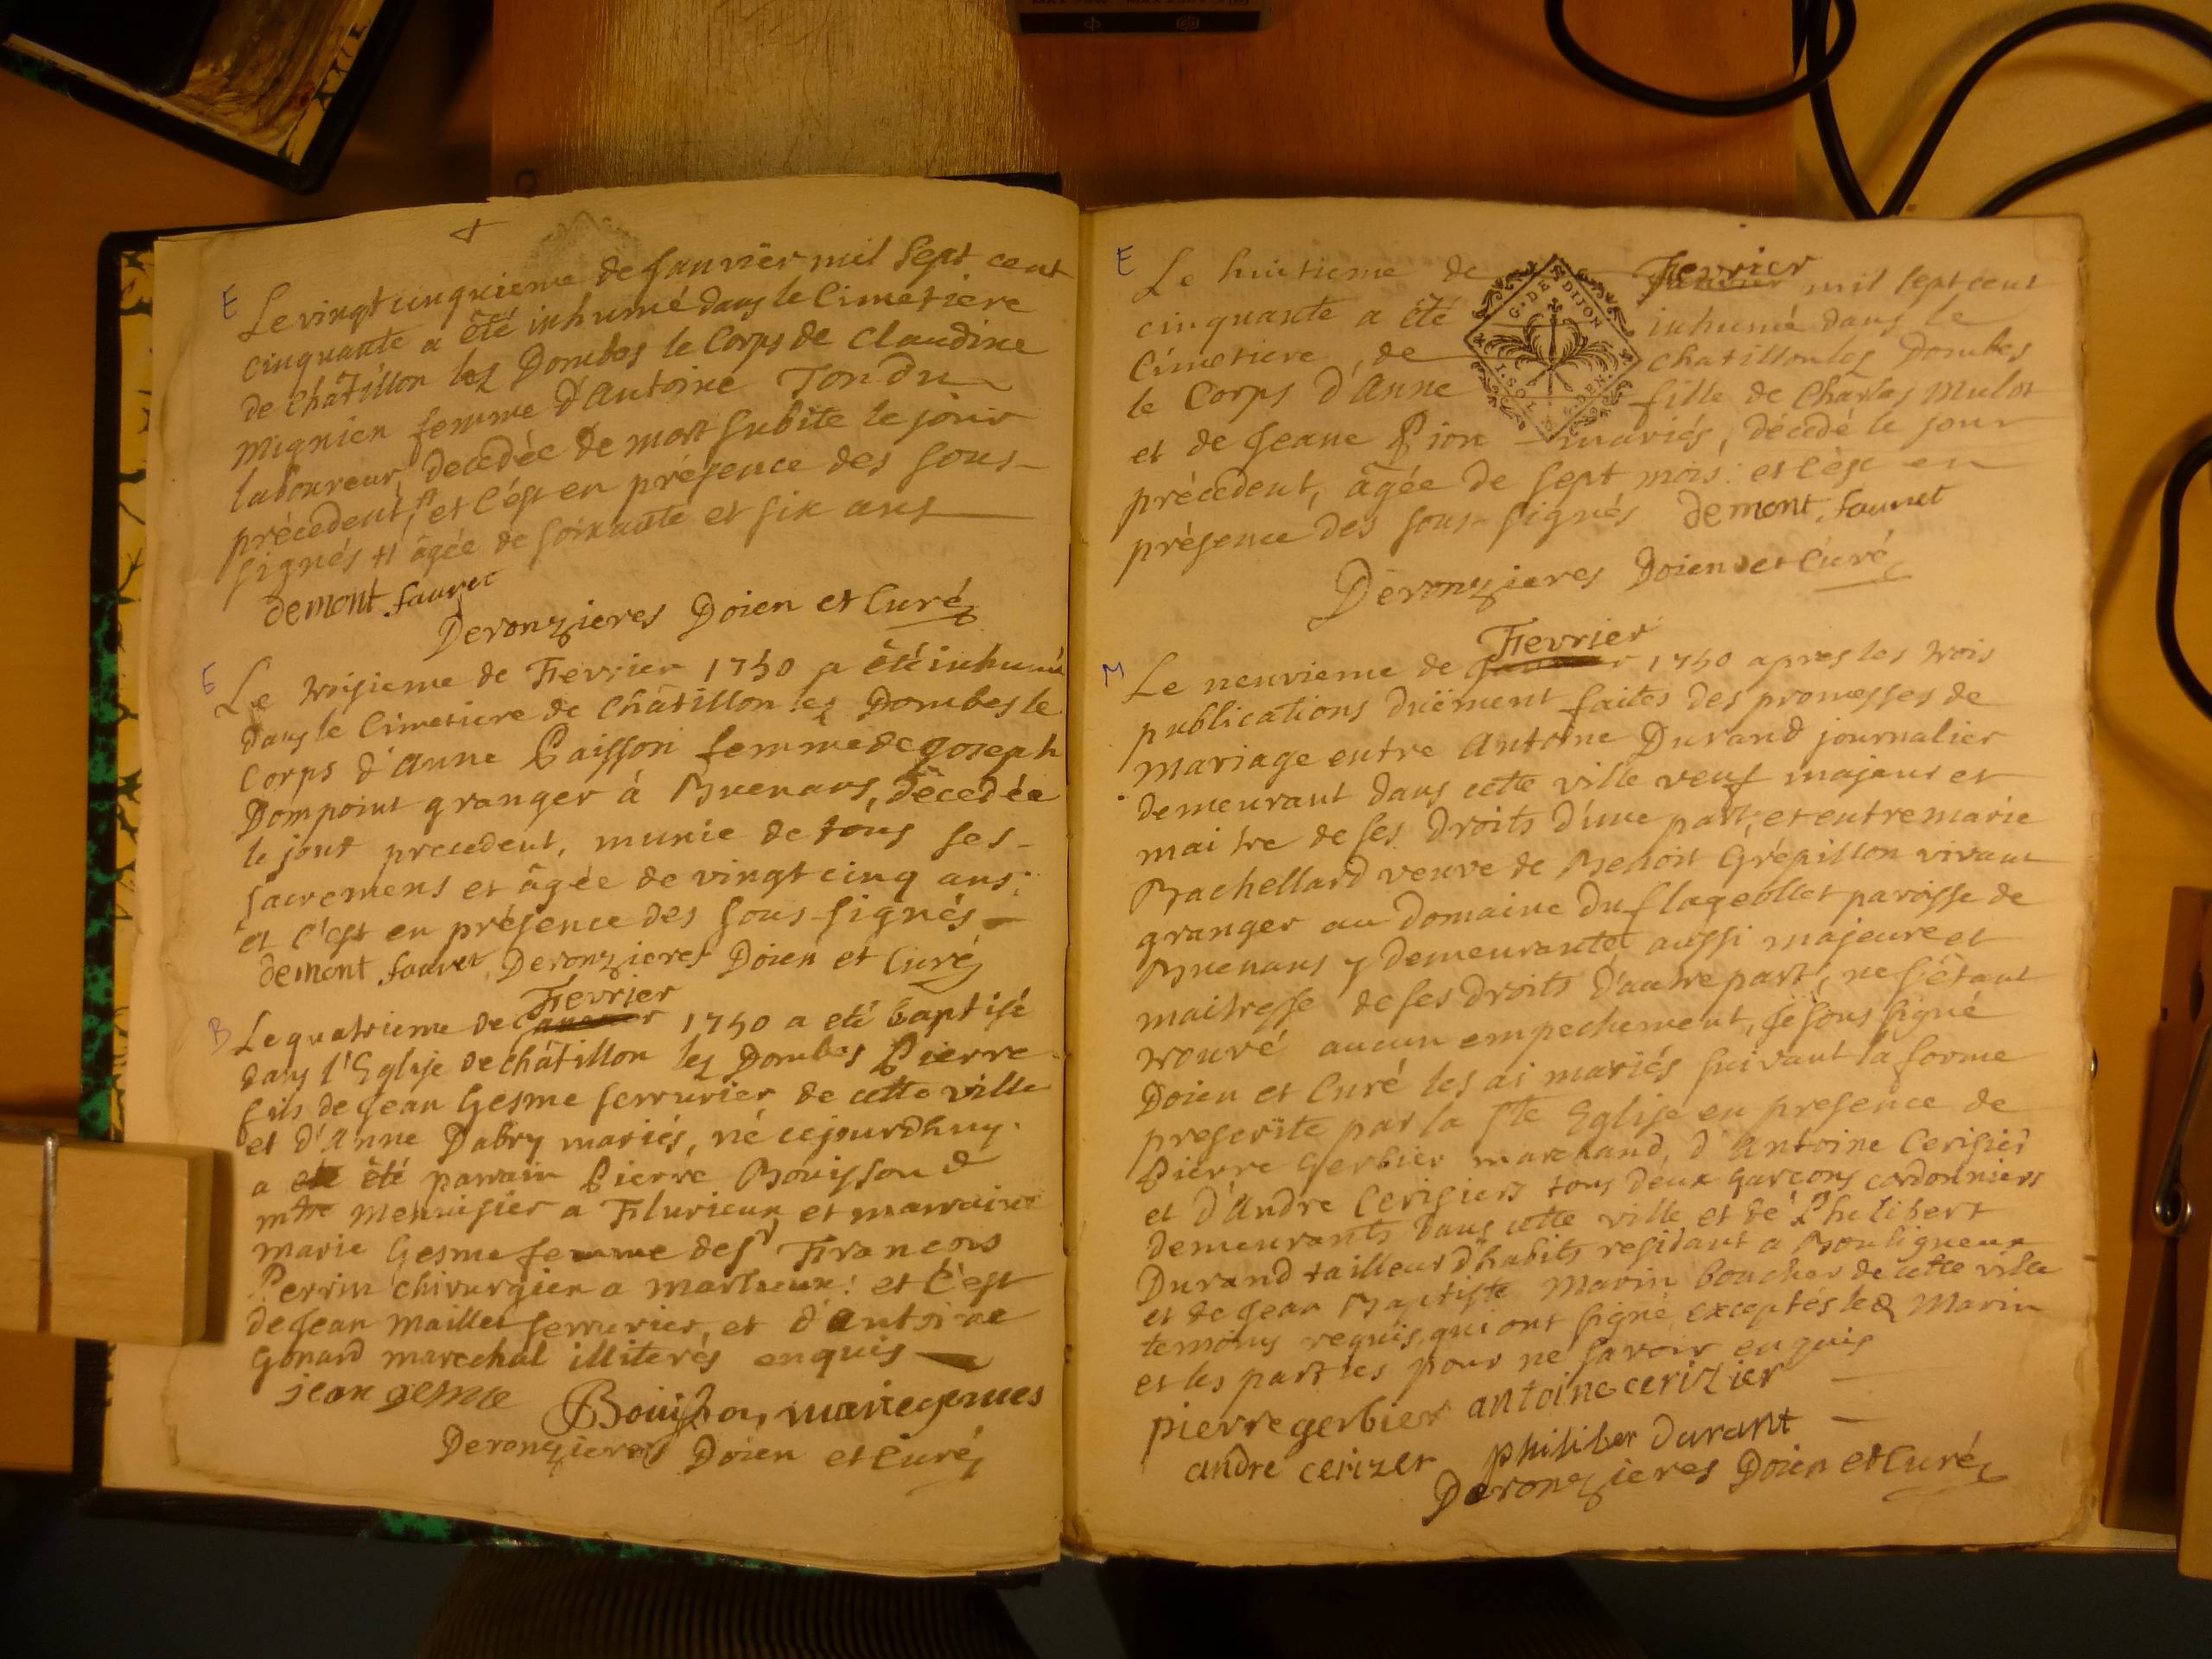 E
Le vingt cinquieme de Janvier mil sept cent
cinquante a êté inhumé dans le Cimetiere
de Châtillon les Dombes le Corps de Claudine
Mignien femme d'Antoine Tondu
laboureur, decedée de mort subite le jour
précedent, # et c'est en présence des sous-
signés # âgée de soixante et six ans
demont. fauret
Deronzieres Doien et Curé
E
Le troisieme de Fevrier 1750 a êté inhumé
dans le Cimetiere de Châtillon les Dombes le
Corps d'Anne Paisson femme de Joseph
Dompoint granger à Buenans, décedée
le jour precedent, munie de tous ses
sacremens et âgée de vingt cinq ans:
et c'est en présence des sous-signés
demont. fauret Deronzieres Doien et Curé
Fevrier
B
Le quatrieme de 1750 a eté baptisé
dans l'Eglise de châtillon les Dombes Pierre
fils de Jean Gesme serrurier de cette ville
et d'Anne Dabry mariés, né cejourdhuy.
a été parrain Pierre Bouisson
mtre menuisier a Flurieux et marraine
marie Gesme femme de sr François
Perrin chirurgien a marlieux: et c'est
de Jean Maillet serrurier, et d'antoine
Gonard marechal illiterés enquis
jean gesme Bouisson marie gemes
Deronzieres Doien et Curé
E
Le huitieme de Fevrier mil sept cent
cinquante a êté inhumé dans le
Cimetiere de chatillon les Dombes
le Corps d'Anne fille de Charles Mulot
et de Jeane Pion mariés, décédé le jour
précedent, âgée de sept mois: et c'est en
présence des sous-signés demont. fauret
Deronzieres Doien et Curé
G. DE DIJON
Fevrier
M
Le neuvieme de 1750 apres les trois
publications duëment faites des promesses de
mariage entre Antoine Durand journalier
demeurant dans cette ville veuf majeur et
maitre de ses droits d'une part, et entre marie
Bachellard veuve de Benoit Grépillon vivant
granger au domaine du flageollet paroisse de
Buenans y demeurante aussi majeure et
maitresse de ses droits d'autre part, ne s'étant
trouvé aucun empechement, je sous signé
Doien et Curé les ai mariés suivant la forme
prescrite par la Ste Eglise en presence de
Pierre Gerbier marchand, d'Antoine Cerisier
et d'André Cerisiers tous deux garçons cordonniers
demeurants dans cette ville et de Philibert
Durand tailleur d'habits residant a Bouligneux
et de Jean Baptiste Marin boucher de cette ville
temoins requis, qui ont signé exceptés led Marin
et les parties pour ne savoir enquis
pierre gerbier antoine cerizier
andre cerizer philiber durant
Deronzieres Doien et Curé